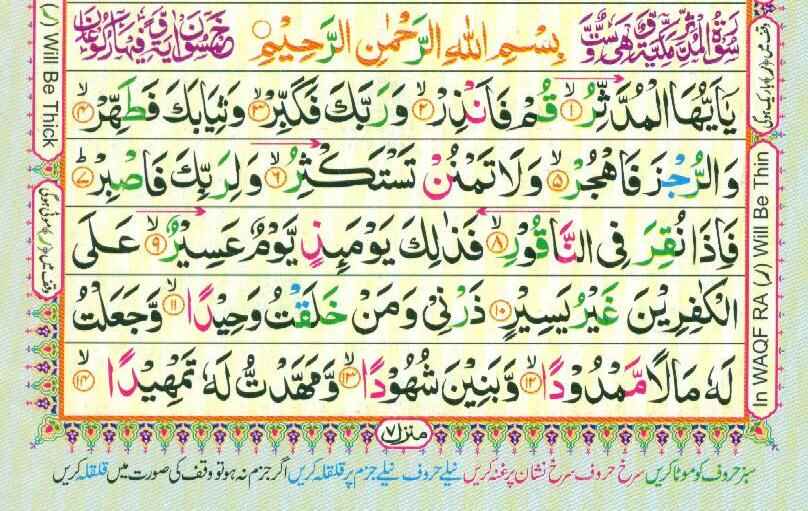 سُوْرَةُ الْمُدَّثِّرِ مَكِّيَّةٌ وَّهِیَ سِتٌّ وَّ
بِسْمِ اللهِ الرَّحْمٰنِ الرَّحِيْمِ
خَمْسُوْنَ اٰيَةً وَّفِيْهَا رُكُوْعَانِ
يٰۤاَيُّهَا الْمُدَّثِّرُ ۙ﴿۱﴾ قُمْ فَاَنْذِرْ ۙ﴿۲﴾ وَرَبَّكَ فَكَبِّرْ ۙ﴿۳﴾ وَثِيَابَكَ فَطَهِّرْ ۙ﴿۴﴾
وَالرُّجْزَ فَاهْجُرْ ۙ﴿۵﴾ وَلَا تَمْنُنْ تَسْتَكْثِرُ ۙ﴿۶﴾ وَلِرَبِّكَ فَاصْبِرْ ؕ﴿۷﴾
فَاِذَا نُقِرَ فِی النَّاقُوْرِ ۙ﴿۸﴾ فَذٰلِكَ يَوْمَئِذٍ يَّوْمٌ عَسِيْرٌ ۙ﴿۹﴾ عَلَی
الْكٰفِرِيْنَ غَيْرُ يَسِيْرٍ ﴿۱۰﴾ ذَرْنِیْ وَمَنْ خَلَقْتُ وَحِيْدًا ۙ﴿۱۱﴾ وَّجَعَلْتُ
لَهٗ مَالًا مَّمْدُوْدًا ۙ﴿۱۲﴾ وَّبَنِيْنَ شُهُوْدًا ۙ﴿۱۳﴾ وَّمَهَّدْتُّ لَهٗ تَمْهِيْدًا ۙ﴿۱۴﴾
منزل ۷
سبز حروف کو موٹا کریں سرخ حروف سرخ نشان پر غنہ کریں نیلے حروف نیلے جزم پر قلقلہ کریں اگر جزم نہ ہو تو وقف کی صورت میں قلقلہ کریں
(ر) Will Be Thick
In WAQF RA (ر) Will Be Thin